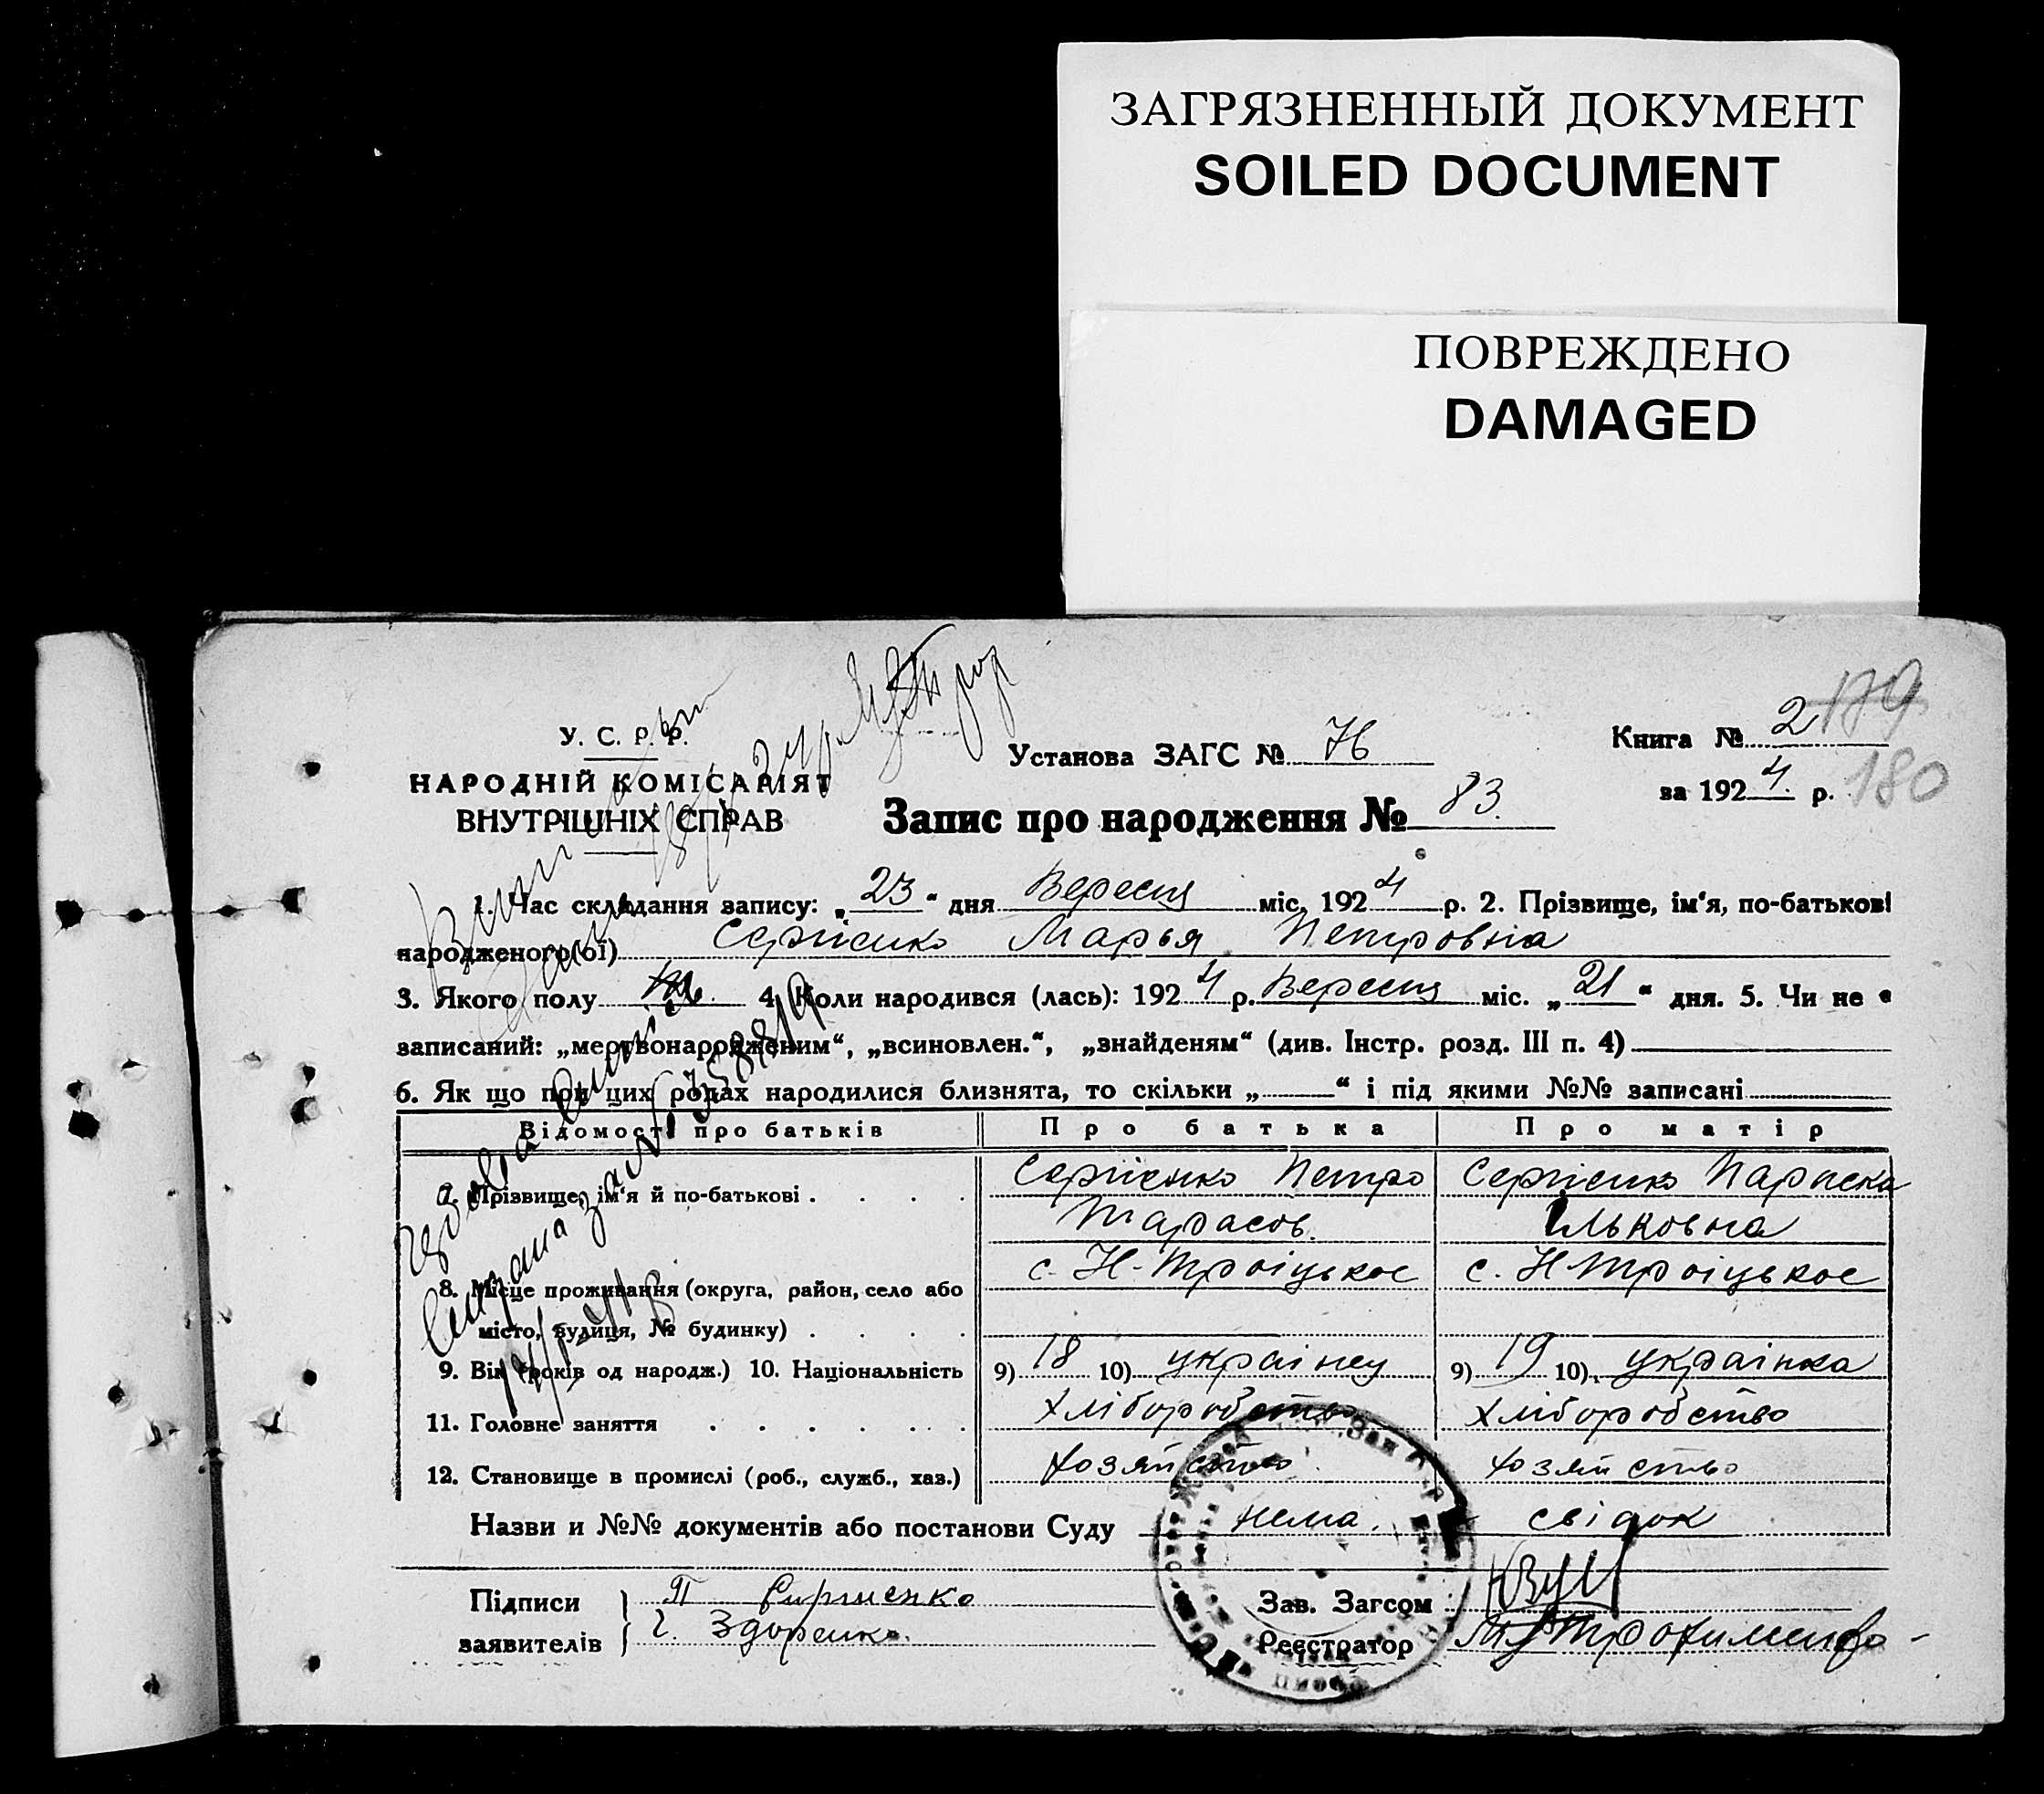 ЗАГРЯЗНЕННЫЙ ДОКУМЕНТ
SOILED DOCUMENT
ПОВРЕЖДЕНО
DAMAGED
179
180
У. С. Р. Р.
НАРОДНІЙ КОМІСАРІЯТ
ВНУТРІШНІХ СПРАВ
Установа ЗАГС № 76
Книга № 2
за 1924 р.
Запис про народження № 83.
1. Час складання запису: „23“ дня Вересня міс. 1924 р. 2. Прізвище, ім‘я, по-батькові
народженого(ої) Сергієнко Марья Петровна
3. Якого полу 4. Коли народився (лась): 1924 р. Вересня міс. „21“ дня. 5. Чи не є
записаний: „мертвонародженим“, „всиновлен.“, „знайденям“ (див. Інстр. розд. III п. 4)
6. Як що при цих родах народилися близнята, то скільки „ “ і під якими №№ записані
Відомості про батьків Про батька Про матір
7. Прізвище, ім‘я й по-батькові . . . . Сергієнко Петро Сергієнко Параска
Тарасов. Ільковна
8. Місце проживання (округа, район, село або с. Н-Троіцькое с. Н Троіцькое
місто, вулиця, № будинку) . . . .
9. Вік (років од народж.) 10. Національність 9) 18 10) украінец 9) 19 10) украінка
11. Головне заняття . . . . . . хліборобство хліборобство
12. Становище в промислі (роб., служб., хаз.) хозяйство хозяйство
Назви и №№ документів або постанови Суду нема. свідок
Підписи П Сиргиенко Зав. Загсом
заявителів Г. Здоренко. Реєстратор Трохименко